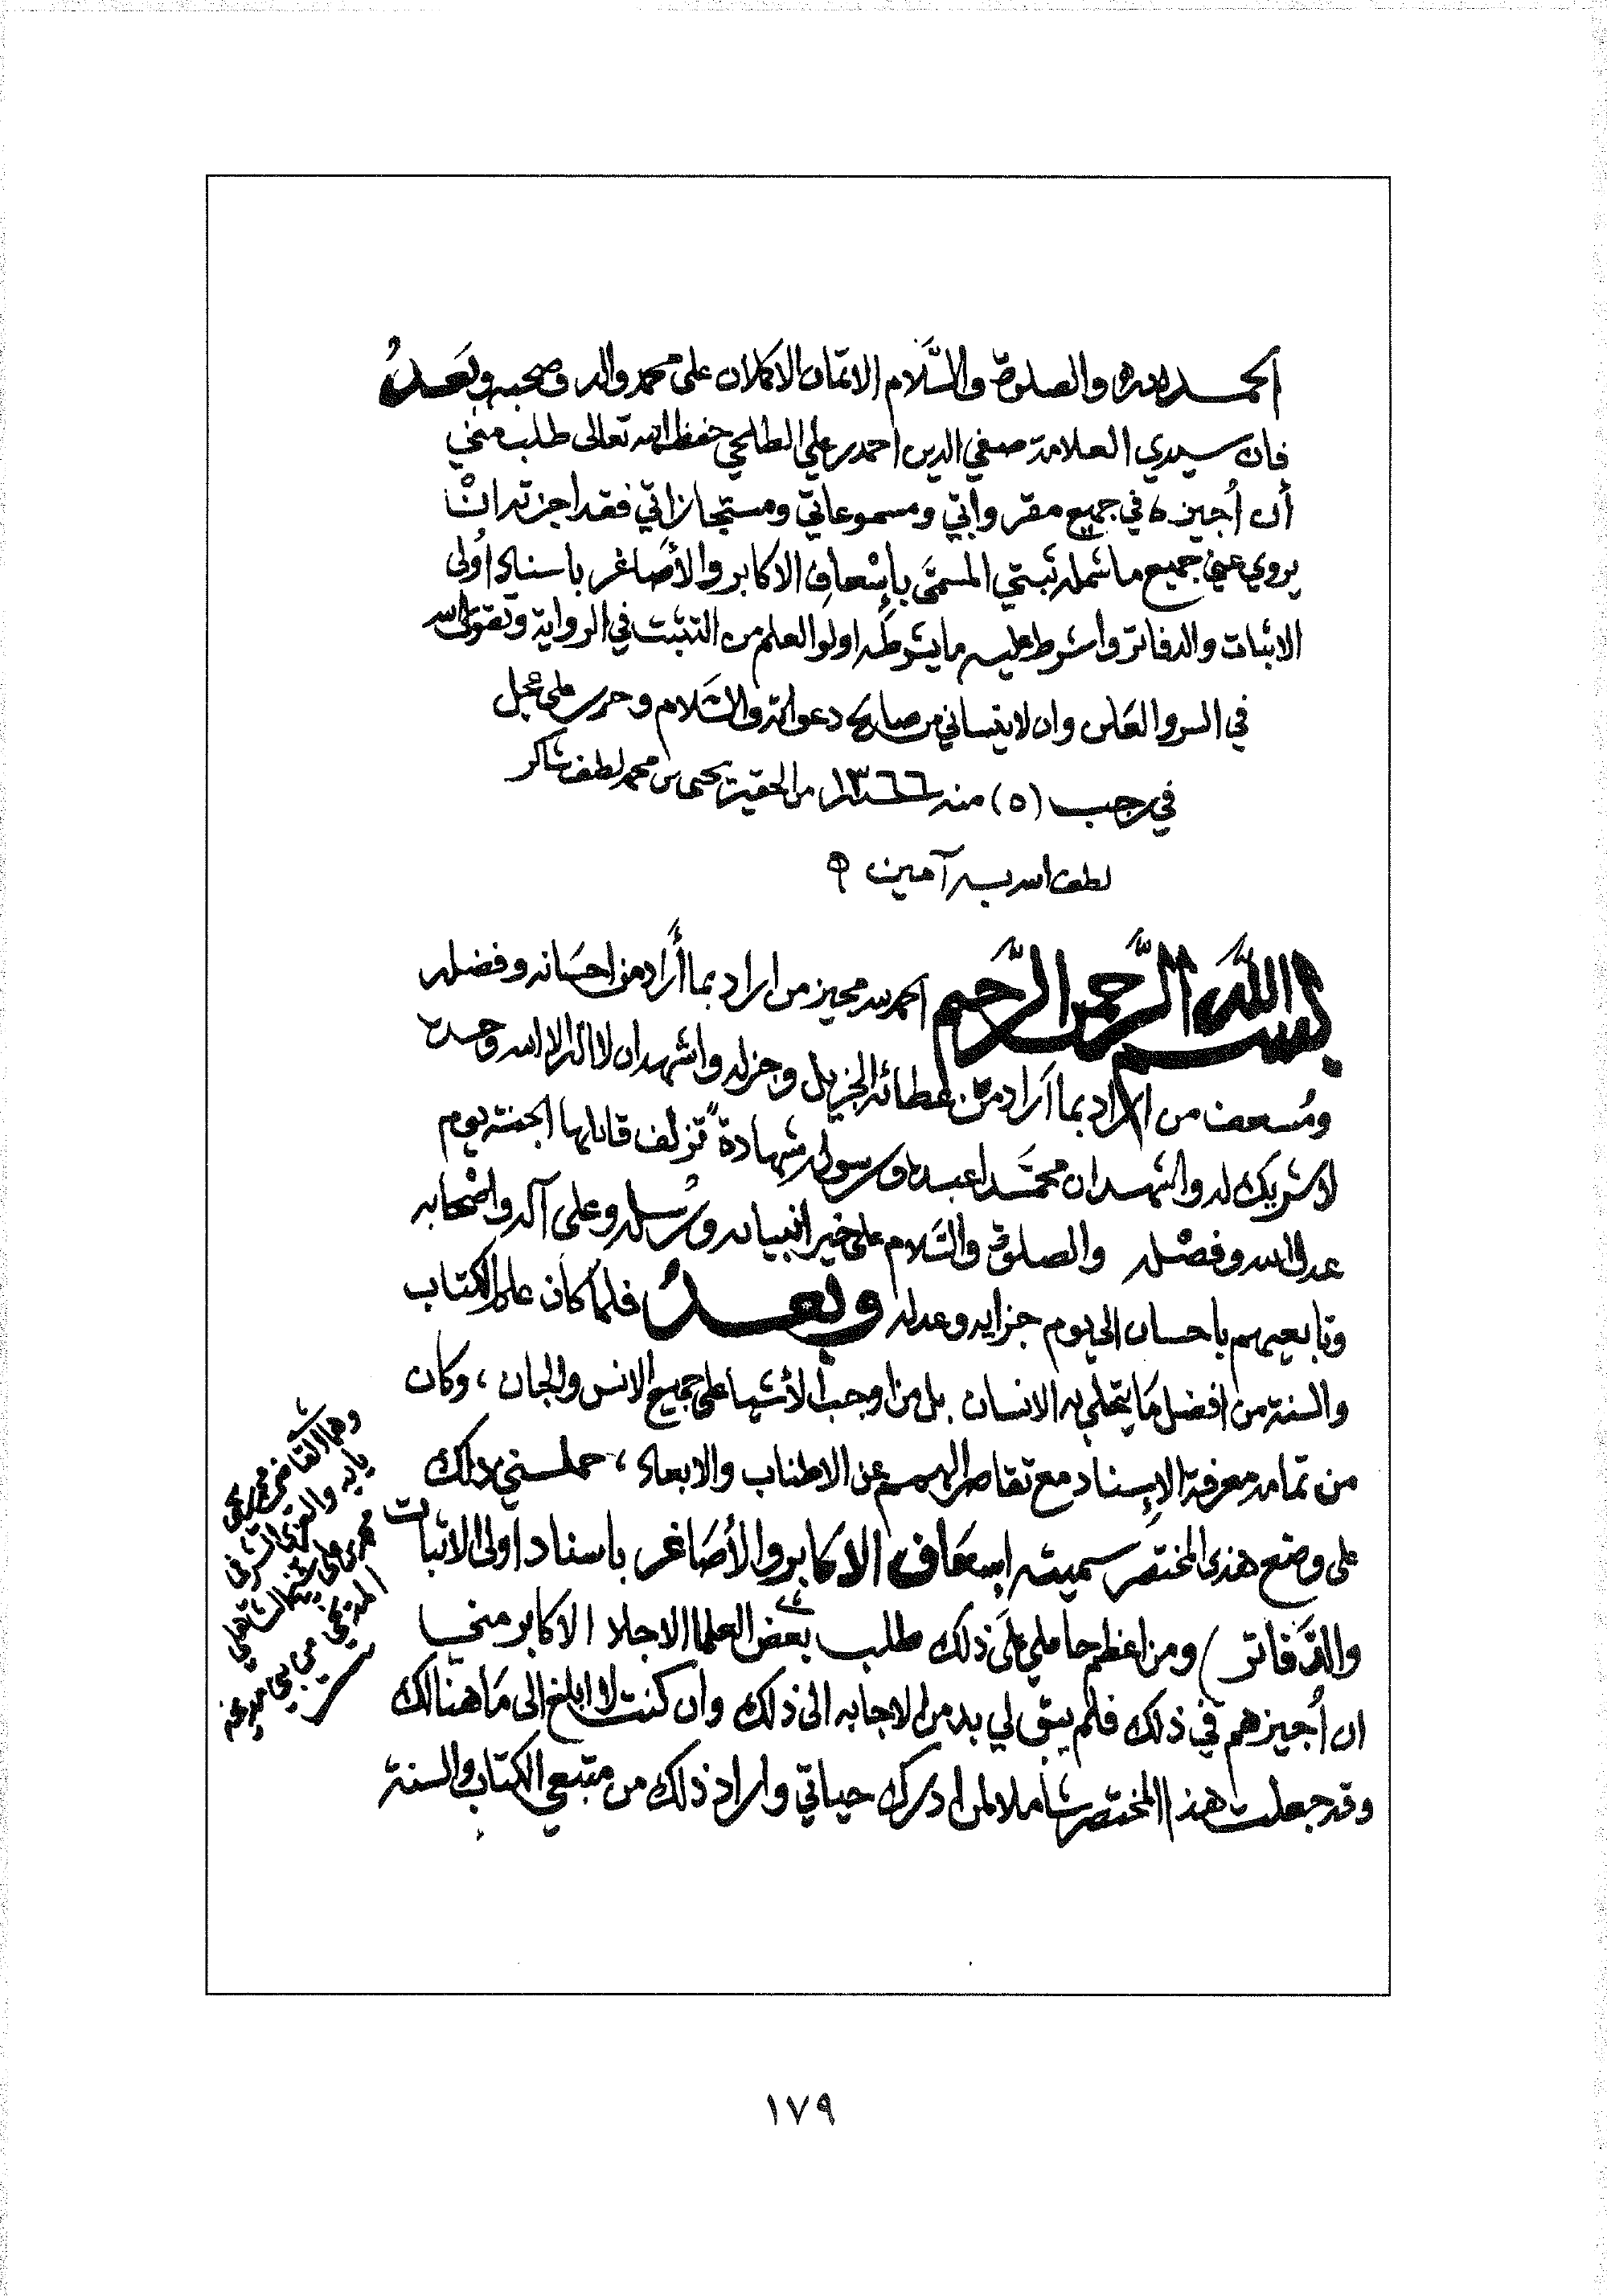 الحمد لله والصلوة والسَّلام الاتمّان الاكملان على محمد واله وصحبه وبَعدُ
فان سيدي العلامة صفي الدين احمد بن علي الطلحي حفظه الله تعالى طلب مني
أن أُجيزه في جميع مقرواتي ومسموعاتي ومستجازاتي فقد اجزته انْ
يروي عني جميع ما شمله ثبتي المسمَّى بإسْعافِ الاكابر والأصَاغر باسناد اُولى
الاثبات والدفاتر واشرط عليه ما يشرطه اولوا العلم من التثبت في الرواية وتقوى الله
في السر والعَلن وان لا ينساني من صالح دعواته والسَّلام وحرر على عجل
في رجب (٥) منه سنة ١٣٦٦ من الحقير يحيى بن محمد لطف شاكر
لطف الله به آمين
بسم اللَّه الرَّحمن الرَّحيم الحمد لله مجيز من اراد بما أَراد من احسَانه وفضله
ومُسعف من اراد بما اَراد من عطائه الجزيل وجزله واشهد ان لا اله الا الله وحده
لا شريك له واشهد ان محمَّدا عبده ورسوله شهادةً تزلف قائلها الجنة يوم
عدل الله وفضْله والصلوة والسَّلام على خير انبيائه ورُسله وعلى آله واصْحابه
وتابعيهم باحسان الى يوم جزايه وعدله وبعدُ فلما كان علم الكتاب
والسنة من افضل مَا يتحلي به الانسان بل من اوجب الأشيا على جميع الانس والجان ، وكان
من تمامه معرفة الإسناد مع تقاصر الهمم عن الاطناب والابعاد ، حملـني ذلك
على وضع هذى المختصر سميته إسعَاف الاكابر والأصَاغر باسناد اولى الاثبات
والدَّفاتر) ومن اعظم حامل لي عَلَى ذلك طلب بعض العلما الاجلا الاكابر مني
ان اُجيزهم في ذلك فلم يبق لي بد من الاجابه الى ذلك وان كنت لا ابلغ الى مَا هنالك
وقد جعلت هذا المختصر شاملا لمن ادرك حياتي واراد ذلك من متبعي الكتاب والسنة
وهما القاضي محمد بن
١٧٩